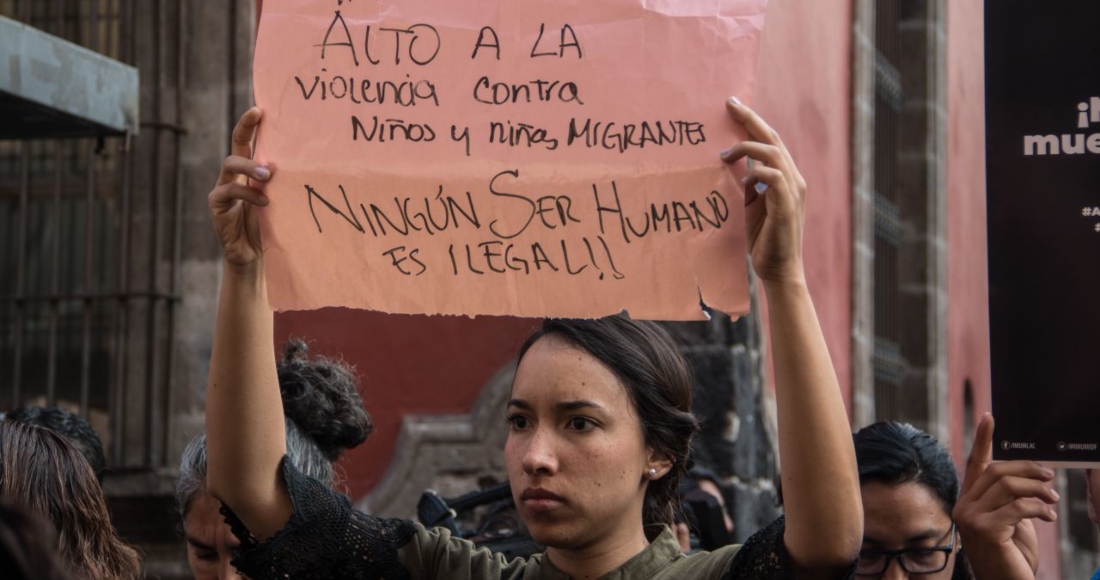 ALTO A LA
violencia contra
NIÑOS y niñas MIGRANTES
NINGÚN SER HUMANO
ES ILEGAL!!
mue
#A